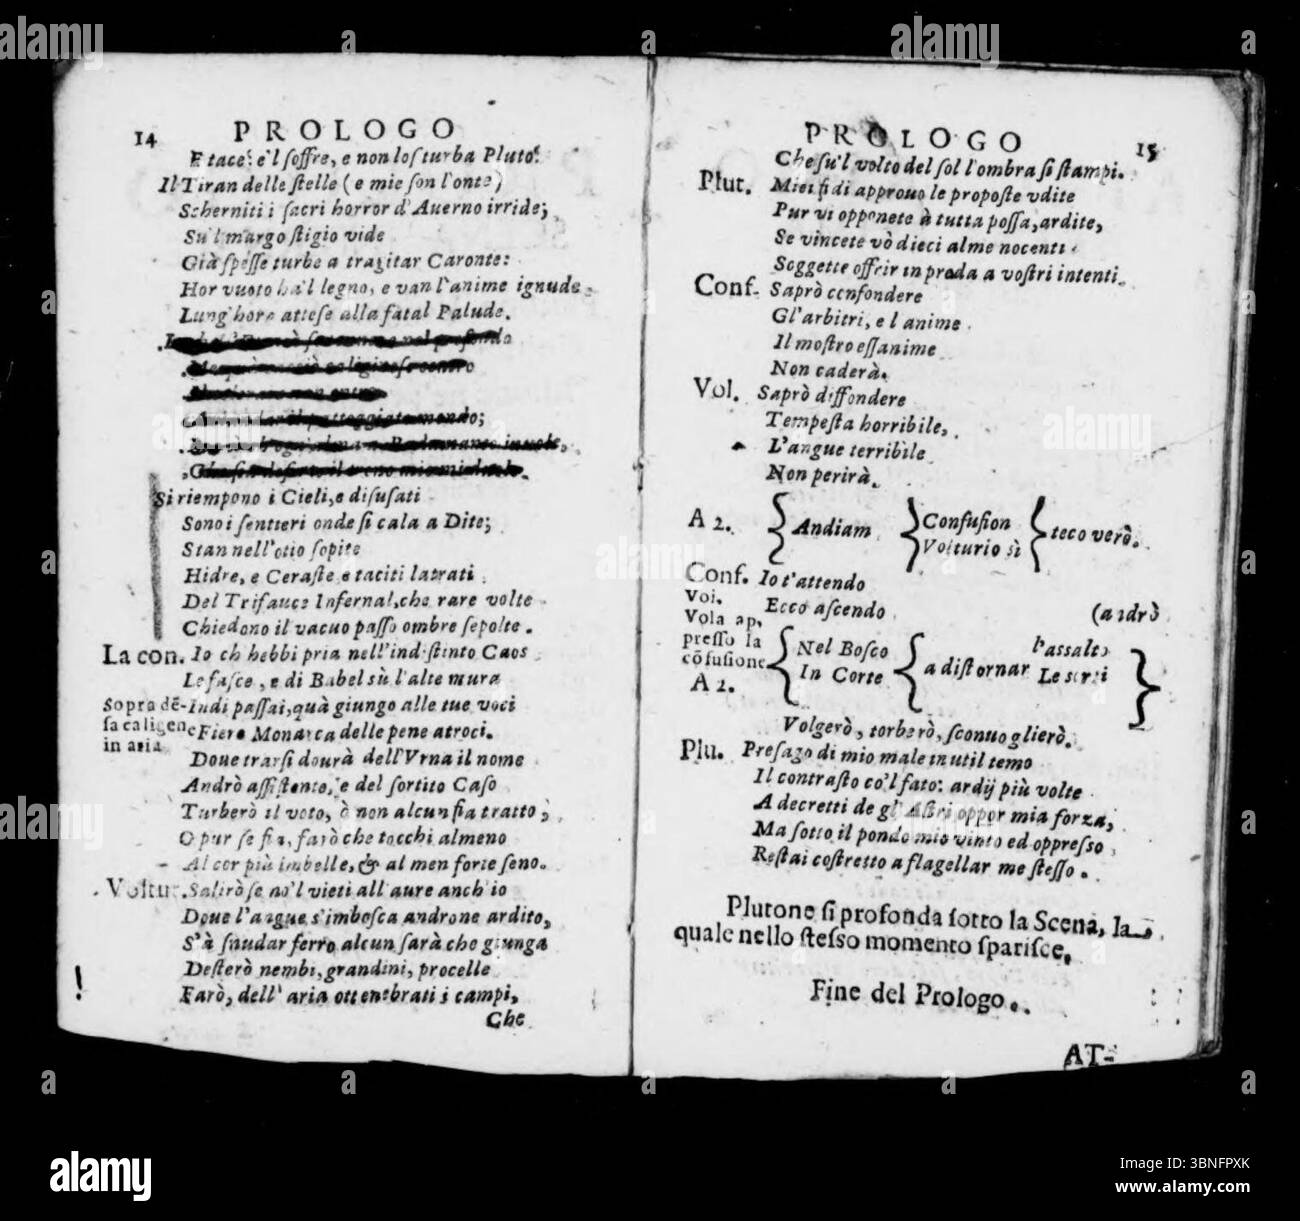 14 PROLOGO
E tace? e'l soffre, e non lo sturba Pluto?
Il Tiran delle stelle (e mie son l'onte)
Scherniti i sacri horror d'Auerno irride;
Su'l margo stigio vide
Già spesse turbe a tragitar Caronte:
Hor vuoto ha'l legno, e van l'anime ignude
Lung'hore attese alla fatal Palude.
Si riempono i Cieli, e disusati
Sono i sentieri onde si cala a Dite;
Stan nell'otio sopite
Hidre, e Ceraste e taciti latrati
Del Trifauce Infernal, che rare volte
Chiedono il vacuo passo ombre sepolte.
La con. Io ch hebbi pria nell'indistinto Caos
Le fasce, e di Babel sù l'alte mura
Sopra dē- Indi passai, quà giungo alle tue voci
sa caligene Fiero Monarca delle pene atroci.
in aria. Doue trarsi dourà dell'Vrna il nome
Andrò assistente, e del sortito Caso
Turberò il voto, ò non alcun fia tratto;
O pur se fia, farò che tocchi almeno
Al cor più imbelle, & al men forte seno.
Voltur. Salirò se no'l vieti all'aure anch'io
Doue l'angue s'imbosca androne ardito,
S'à snudar ferro alcun sarà che giunga
Desterò nembi, grandini, procelle
Farò, dell'aria ottenebrati i campi,
Che
PROLOGO 15
Che su'l volto del sol l'ombra si stampi.
Plut. Miei fidi approuo le proposte vdite
Pur vi opponete à tutta possa, ardite,
Se vincete vò dieci alme nocenti
Soggette offrir in preda a vostri intenti.
Conf. Saprò confondere
Gl'arbitri, e l anime
Il mostro essanime
Non caderà.
Vol. Saprò diffondere
Tempesta horribile,
L'angue terribile
Non perirà.
A 2. { Andiam { Confusion { teco verò.
Volturio sì
Conf. Io t'attendo
Vol. Ecco ascendo (andrò
Vola ap.
presso la { Nel Bosco { a distornar l'assalto }
cõfusione In Corte Le sorti
A 2.
Volgerò, torberò, sconuoglierò.
Plu. Presago di mio male inutil temo
Il contrasto co'l fato: ardij più volte
A decretti de gl'Astri oppor mia forza,
Ma sotto il pondo mio vinto ed oppresso
Restai costretto a flagellar me stesso.
Plutone si profonda sotto la Scena, la
quale nello stesso momento sparisce.
Fine del Prologo.
AT-
alamy
Image ID: 3BNFPXK
www.alamy.com